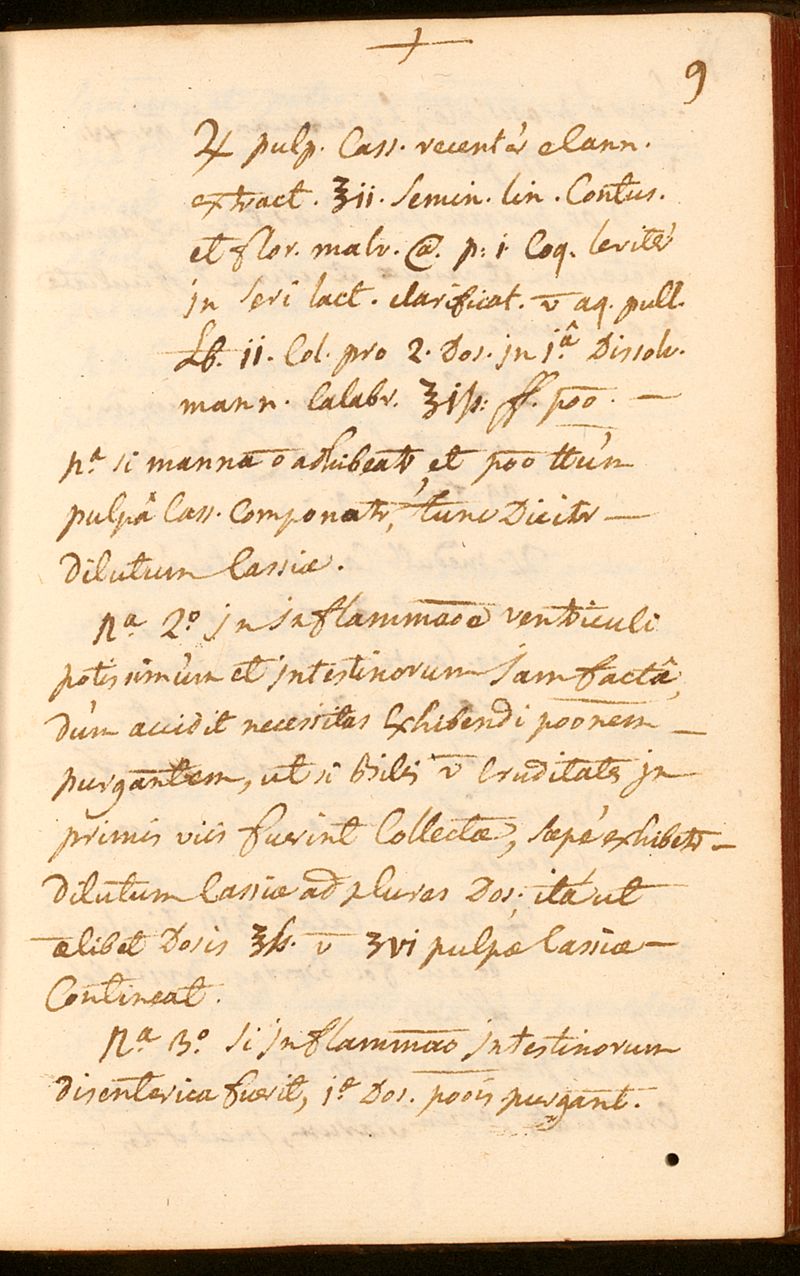 9
♃ pulp. Cass. recentèr e Cann.
extract. ʒii. Semin. lin. Contus.
et flor. malv. @. p: i. Coq. levitèr
in Seri lact. clarificat. v̄ aq. pull.
℔. ii. Col. pro 2. Dos. in j.ª Dissolv.
mann. Calabr. ℥iß: ff. p̄oo. —
Nª si manna ō adhibeatr, et p̄oo ttùm
pulpâ Cass. Componatr, tunc Dicitr —
dilutum Cassiæ.
Nª 2º in Inflammāoe ventriculi
potissimùm et intestinorum Jam factâ,
dùm accidit necessitas Exhibendi p̄oonem —
purgantem, ut si Bilis v̄ Cruditates in
primis viis fuerint Collectæ, sæpè exhibetr —
dilutum Cassiæ ad plures Dos; ità ut
ælibet Dosis ℥ß. v̄ ʒvi pulpæ Cassiæ —
Contineat.
Nª 3º Si Inflammāo intestinorum
disenterica fuerit, jª Dos. p̄oois purgant.